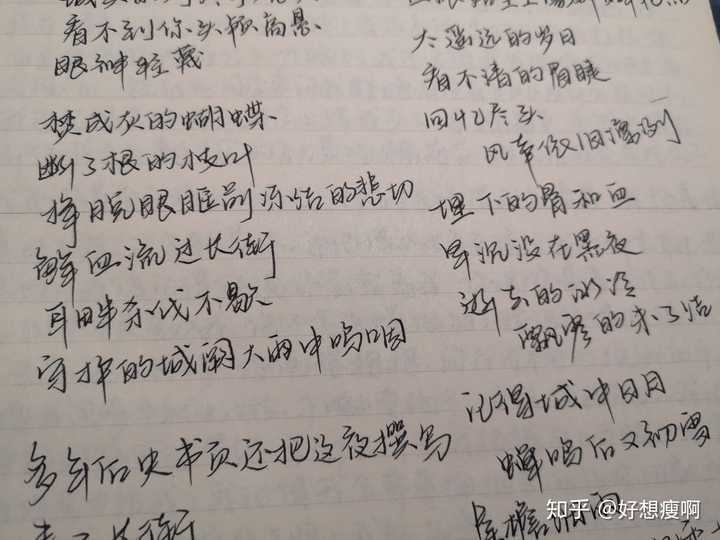 看不到你头颅高悬
眼神轻蔑
焚成灰的蝴蝶
断了根的枝叶
挣脱眼眶前冻结的悲切
鲜血流过长街
耳畔杀伐不歇
守护的城阙大雨中呜咽
多年后史书页还把这夜撰写
太遥远的岁日
看不清的眉睫
回忆尽头
风声依旧凛冽
埋下的骨和血
早沉没在黑夜
逝去的冰冷
飘零的未了结
记得城中日月
蝉鸣后又初雪
知乎 @好想瘦啊